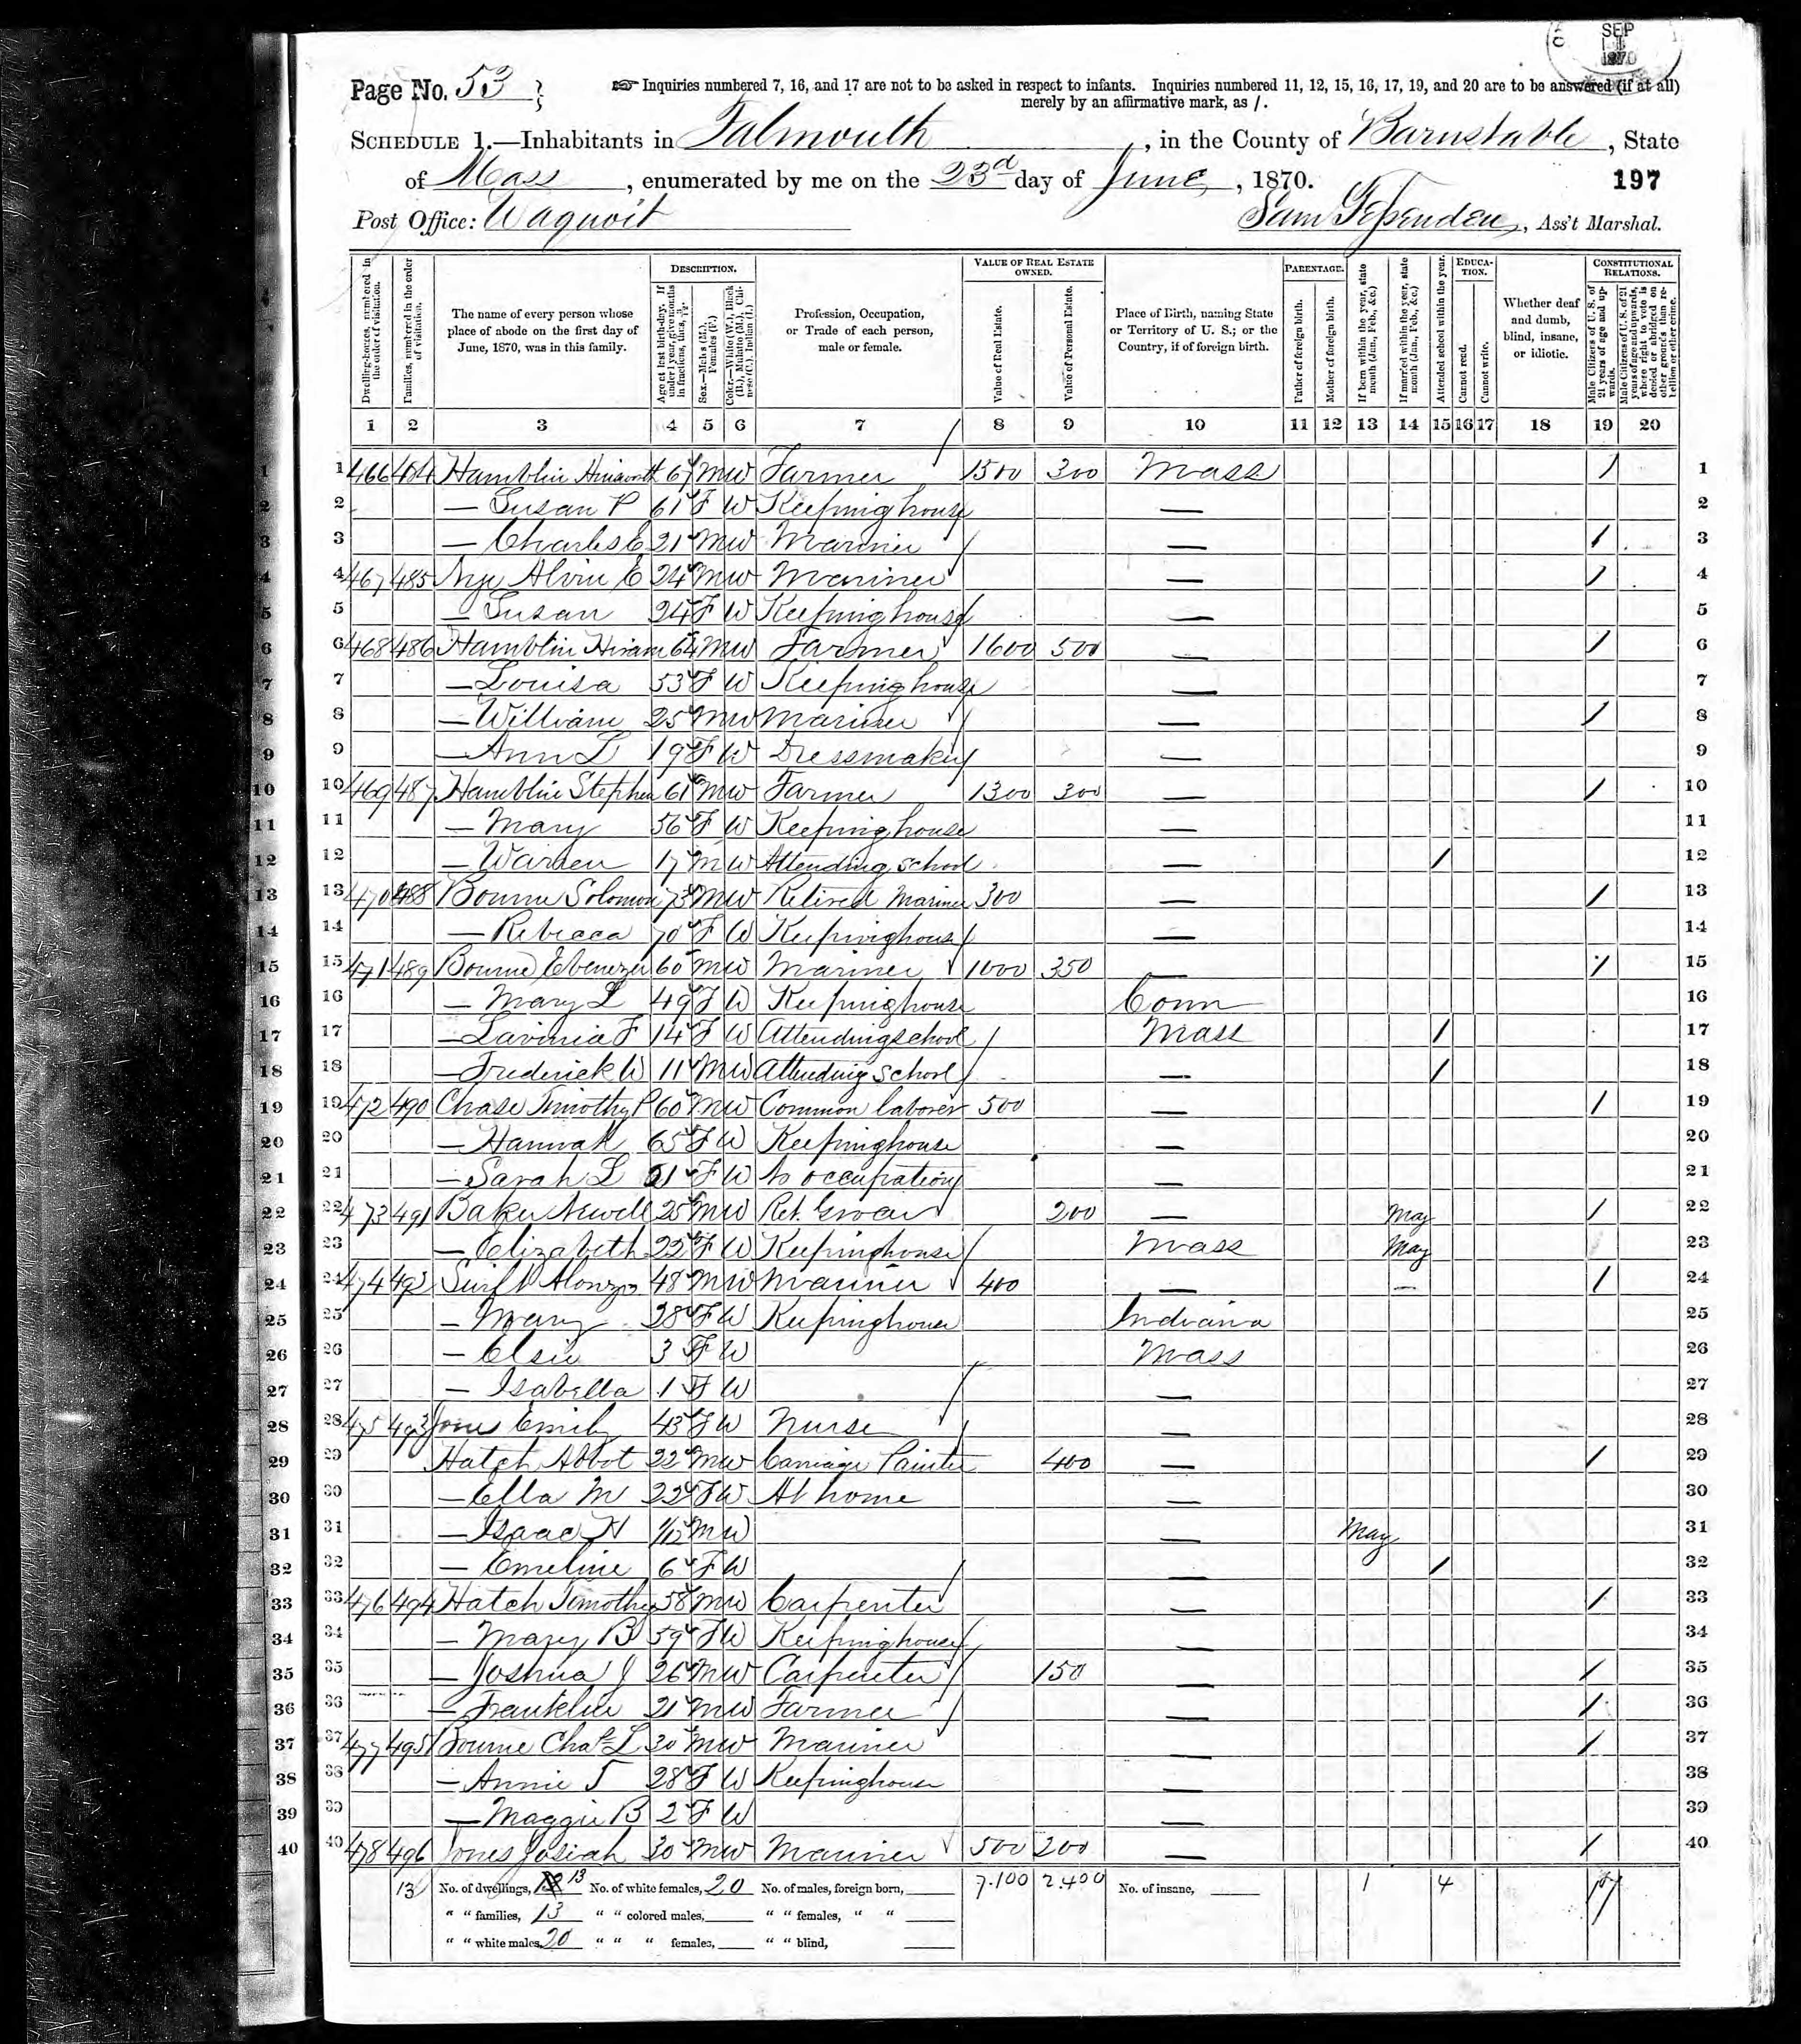 SEP
1870
Page No. 53
Inquiries numbered 7, 16, and 17 are not to be asked in respect to infants. Inquiries numbered 11, 12, 15, 16, 17, 19, and 20 are to be answered (if at all)
merely by an affirmative mark, as /.
SCHEDULE 1.—Inhabitants in Falmouth, in the County of Barnstable, State
of Mass, enumerated by me on the 23d day of June, 1870. 197
Post Office: Waquoit
Ass't Marshal.
Dwelling-houses, numbered in the order of visitation.
Families, numbered in the order of visitation.
The name of every person whose place of abode on the first day of June, 1870, was in this family.
DESCRIPTION.
Age at last birth-day. If under 1 year, give months in fractions, thus, 3/12
Sex.—Males (M.), Females (F.)
Color.—White (W.), Black (B.), Mulatto (M.), Chinese (C.), Indian (I.)
Profession, Occupation, or Trade of each person, male or female.
VALUE OF REAL ESTATE OWNED.
Value of Real Estate.
Value of Personal Estate.
Place of Birth, naming State or Territory of U. S.; or the Country, if of foreign birth.
PARENTAGE.
Father of foreign birth.
Mother of foreign birth.
If born within the year, state month (Jan., Feb., &c.)
If married within the year, state month (Jan., Feb., &c.)
Attended school within the year.
EDUCATION.
Cannot read.
Cannot write.
Whether deaf and dumb, blind, insane, or idiotic.
CONSTITUTIONAL RELATIONS.
Male Citizens of U. S. of 21 years of age and upwards.
Male Citizens of U. S. of 21 years of age and upwards, where right to vote is denied or abridged on other grounds than rebellion or other crime.
1 2 3 4 5 6 7 8 9 10 11 12 13 14 15 16 17 18 19 20
1 466 484 Hamblin 67 M W Farmer 1500 300 Mass / 1
2 — Susan P 61 F W Keeping house — 2
3 — Charles E 21 M W Mariner — / 3
4 467 485 Nye Alvin E 24 M W Mariner — / 4
5 — Susan 24 F W Keeping house — 5
6 468 486 Hamblin Hiram 64 M W Farmer 1600 500 — / 6
7 — Louisa 53 F W Keeping house — 7
8 — William 25 M W Mariner — / 8
9 — Ann L 19 F W Dressmaker — 9
10 469 487 Hamblin Stephen 61 M W Farmer 1300 300 — / 10
11 — Mary 56 F W Keeping house — 11
12 — Warren 17 M W Attending school — / 12
13 470 488 Bourne Solomon 73 M W Retired Mariner 300 — / 13
14 — Rebecca 70 F W Keeping house — 14
15 471 489 Bourne Ebenezer 60 M W Mariner 1000 350 — / 15
16 — Mary L 49 F W Keeping house Conn 16
17 — Lavinia F 14 F W Attending school Mass / 17
18 — Frederick W 11 M W Attending school — / 18
19 472 490 Chase Timothy P 60 M W Common laborer 500 — / 19
20 — Hannah 65 F W Keeping house — 20
21 — Sarah L F W No occupation — 21
22 473 491 Baker Newell 25 M W Ret. Grocer 200 — May / 22
23 — Elizabeth 22 F W Keeping house Mass May 23
24 474 492 Swift Alonzo 48 M W Mariner 400 — — / 24
25 — Mary 28 F W Keeping house Indiana 25
26 — Elsie 3 F W Mass 26
27 — Isabella 1 F W — 27
28 475 493 Jones Emily 43 F W Nurse — 28
29 Hatch Abbot 22 M W Carriage Painter 400 — / 29
30 — Ella M 22 F W At home — 30
31 — Isaac H 1/12 M W — May 31
32 — Emeline 6 F W — / 32
33 476 494 Hatch Timothy 58 M W Carpenter — / 33
34 — Mary B 59 F W Keeping house — 34
35 — Joshua J 26 M W Carpenter 150 — / 35
36 — Franklin 21 M W Farmer — / 36
37 477 495 Bourne Chas L 30 M W Mariner — / 37
38 — Annie T 28 F W Keeping house — 38
39 — Maggie B 2 F W — 39
40 478 496 Jones Josiah 30 M W Mariner 500 200 — / 40
13 No. of dwellings, 13 No. of white females, 20 No. of males, foreign born, 7.100 2.400 No. of insane, 1 4
" " families, 13 " " colored males, " " females, " "
" " white males, 20 " " " females, " " blind,